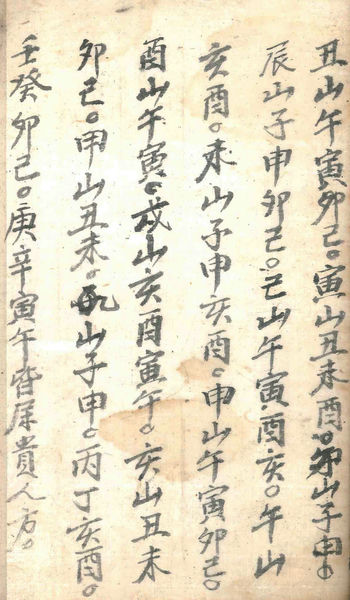 丑山午寅卯己。寅山丑未酉。卯山子申。
辰山子申卯己。己山午寅酉亥。午山
亥酉。未山子申亥酉。申山午寅卯己。
酉山午寅。戌山亥酉寅午。亥山丑未
卯己。甲山丑未。山子申。丙丁亥酉。
壬癸卯己。庚辛寅午皆屬貴人方。